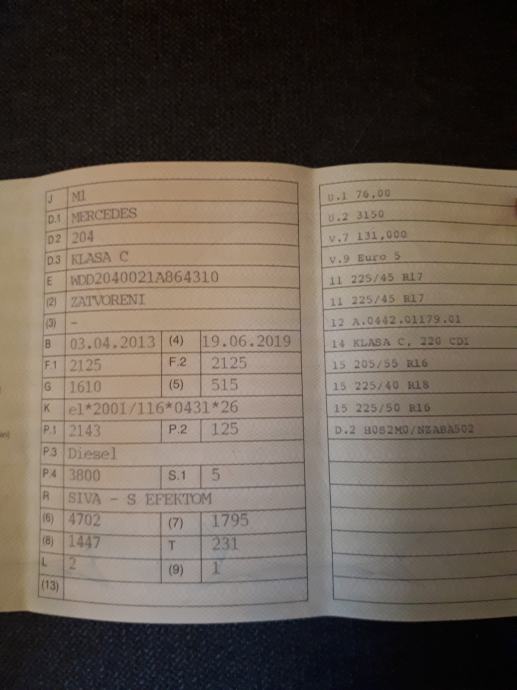 J M1
D.1 MERCEDES
D.2 204
D.3 KLASA C
E WDD2040021A864310
(2) ZATVORENI
(3) -
B 03.04.2013 (4) 19.06.2019
F.1 2125 F.2 2125
G 1610 (5) 515
K e1*2001/116*0431*26
P.1 2143 P.2 125
P.3 Diesel
P.4 3800 S.1 5
R SIVA - S EFEKTOM
(6) 4702 (7) 1795
(8) 1447 T 231
L 2 (9) 1
(13)
U.1 76,00
U.2 3150
V.7 131,000
V.9 Euro 5
11 225/45 R17
11 225/45 R17
12 A.0442.01179.01
14 KLASA C, 220 CDI
15 205/55 R16
15 225/40 R18
15 225/50 R16
D.2 H0S2M0/NZABA502